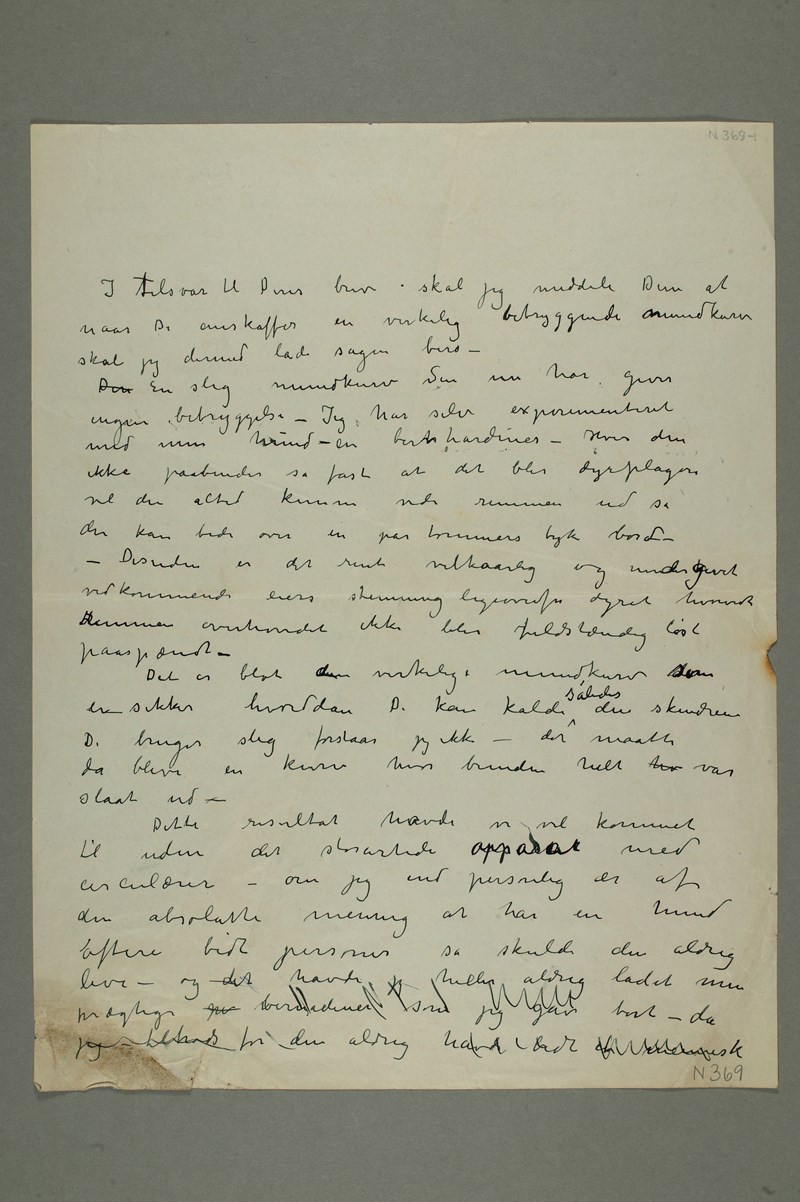 N 369-1
I tilsvar til Deres brev skal jeg meddele Dem at
naar De anskaffer en virkelig betryggende mundkurv
skal jeg dermed lade sagen bero –
Den En slig mundkurv De nu har giver
ingen betryggelse – Jeg har selv experimenteret
med min hund – en bernhardiner – Hvis den
ikke paabindes så fast at det blir dyrplageri
vil den altid kunne vide remmen ud så
den kan bide over en par tommers tyk bord –
– Desuden er det rent vilkaarlig og undergivet
vedkommende eiers stemning ligeoverfor dyret hvorvidt
Remmen overhovedet ikke blir fuldstændig løst
paaspændt –
Det er blot den virkelige mundkurv som
er sikker hvordan De kan kalde den skindrem
således
De bruger slig forstaar jeg ikke – det maatte
da blive en kurv hvor bunden helt var
slaat ud –
Dette resultat havde vi vel kommet
til uden det storartede apparat med
circulærer – om jeg end personlig er af
den absolutte mening at har en hund
oftere bidt personer så skulde den aldrig
leve – og det havde jeg heller aldrig ladet min
prægtige bernardiner som jeg gav bort – da
jeg for den aldrig havde bidt et mennesk
N 369